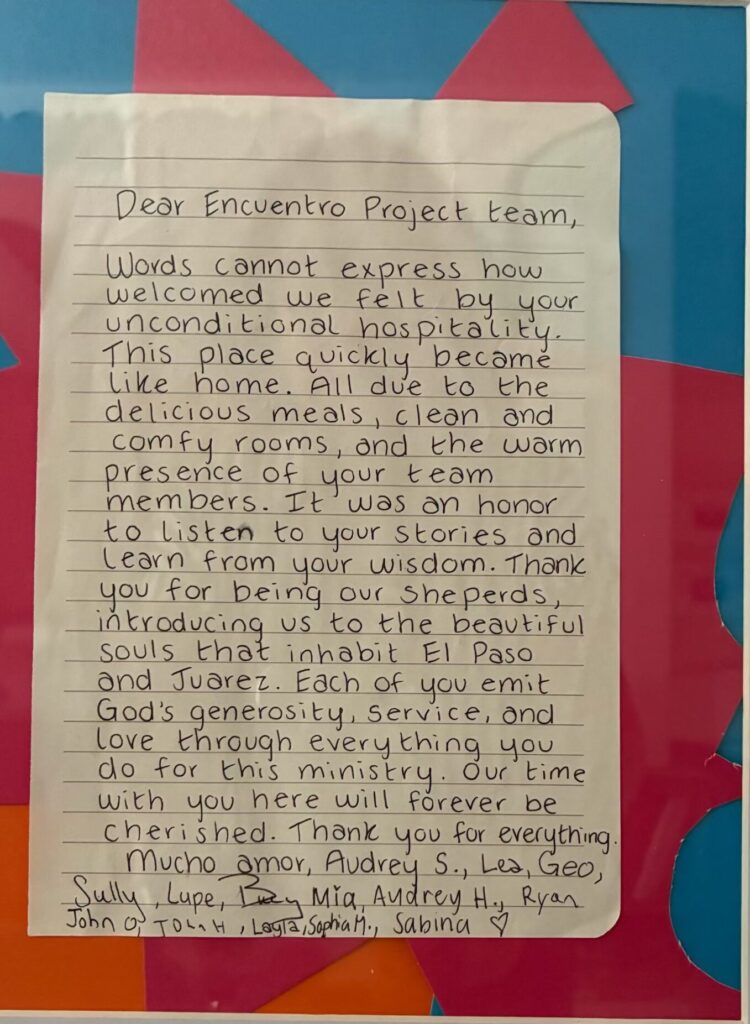 Dear Encuentro Project team,
Words cannot express how
welcomed we felt by your
unconditional hospitality.
This place quickly became
like home. All due to the
delicious meals, clean and
comfy rooms, and the warm
presence of your team
members. It was an honor
to listen to your stories and
learn from your wisdom. Thank
you for being our sheperds,
introducing us to the beautiful
souls that inhabit El Paso
and Juarez. Each of you emit
God's generosity, service, and
love through everything you
do for this ministry. Our time
with you here will forever be
cherished. Thank you for everything.
Mucho amor, Audrey S., Lea, Geo,
Sully, Lupe, Mia, Audrey H., Ryan
John O, John H, Layla, Sophia M., Sabina ♡